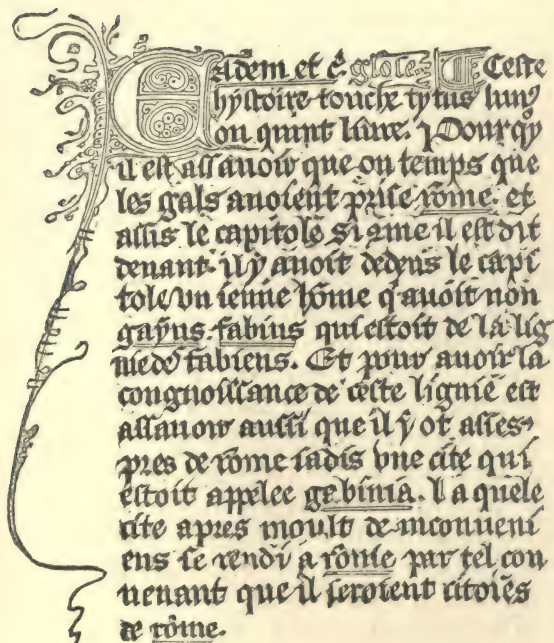 Eadem et c̃. glose. ¶ Ceste
hystoire touche tytus liuiꝰ
ou quint liure. Pour quoy
il est assauoir que ou temps que
les gals auoient prise rõme. et
assis le capitole si cõme il est dit
deuant. il y auoit dedens le capi
tole vn ienne hõme q̃ auoit non
gayus fabius qui estoit de la lig
niede fabiens. Et pour auoir la
congnoissance de ceste lignie est
assauoir aussi que il y ot asses
pres de rome iadis vne cite qui
estoit appelee gebinia. La quele
cite apres moult de inconueni
ens se rendi a rõme par tel con
uenant que il seroient citoiẽs
de rõme.